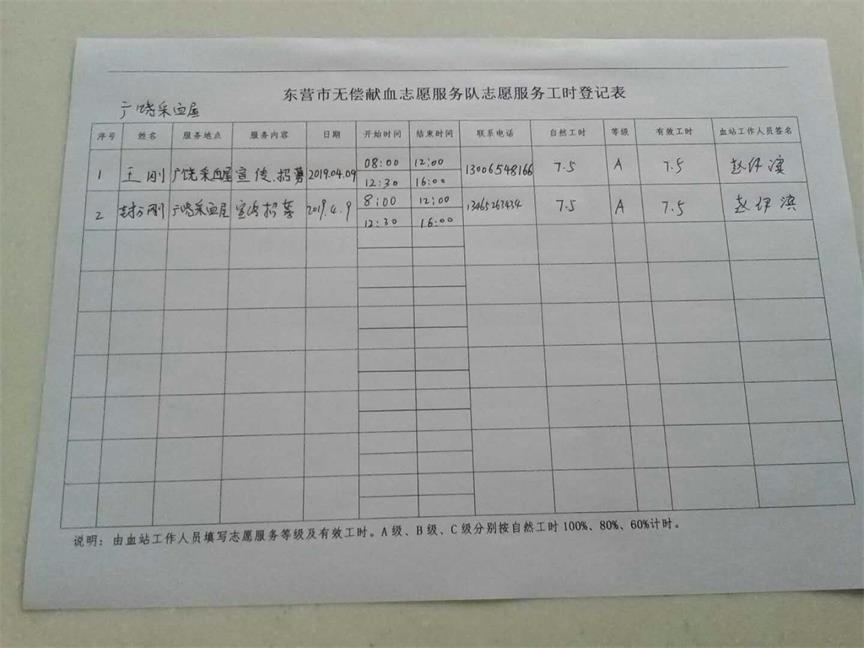 东营市无偿献血志愿服务队志愿服务工时登记表
广饶采血屋
序号 姓名 服务地点 服务内容 日期 开始时间 结束时间 联系电话 自然工时 等级 有效工时 血站工作人员签名
1 王刚 广饶采血屋 宣传、招募 2019.04.09 08:00 12:00 13006548166 7.5 A 7.5
12:30 16:00
2 刚 广饶采血屋 宣传招募 2019.4.9 8:00 12:00 13465263434 7.5 A 7.5
12:30 16:00
说明：由血站工作人员填写志愿服务等级及有效工时。A级、B级、C级分别按自然工时100%、80%、60%计时。